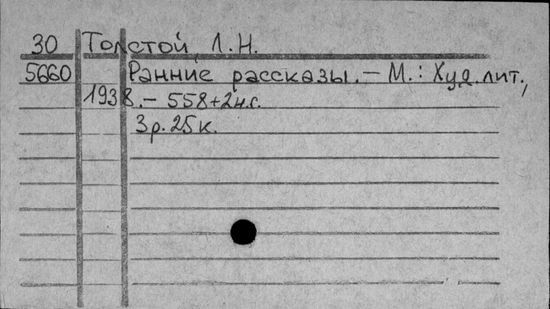 30 Толстой, Л.Н.
5660 Ранние рассказы. – М.: Худ. лит.,
1938. – 558+2н.с.
3р. 25к.